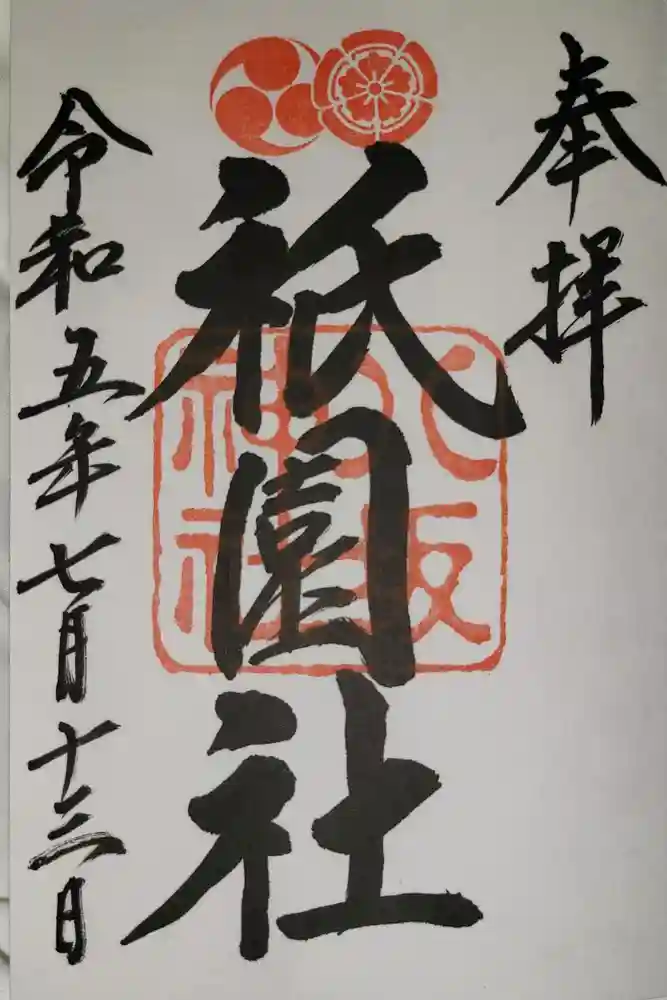 奉拝
祇園社
八坂
神社
令和五年七月十三日